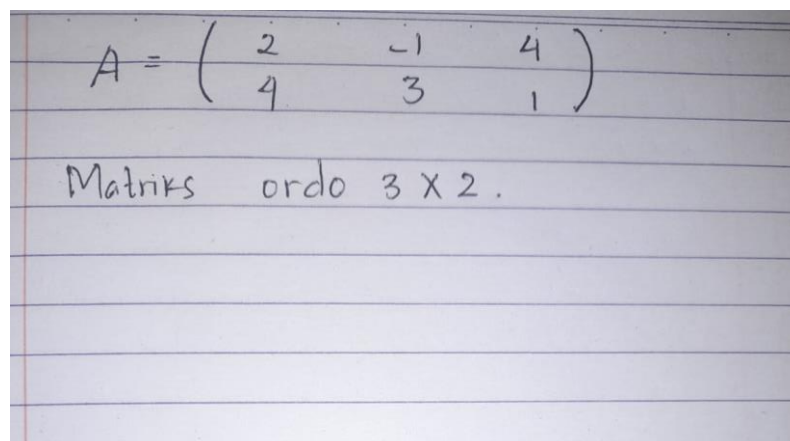 A = ( 2 -1 4
4 3 1 )
Matriks ordo 3 X 2.